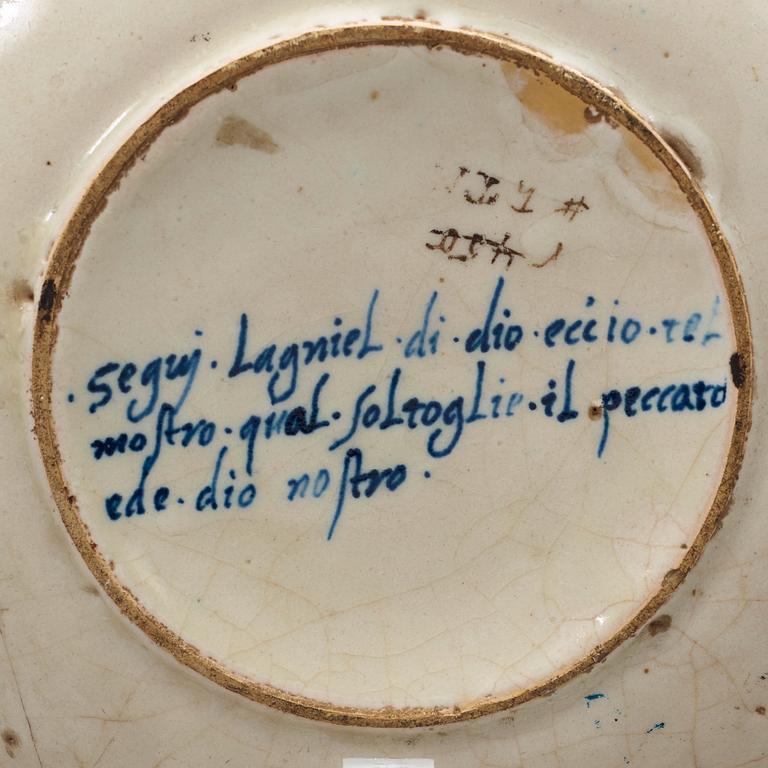 . Seguj . Lagniel . di . dio . eccio . tel
mostro . qual . sol toglie . il peccato
ede . dio nostro .